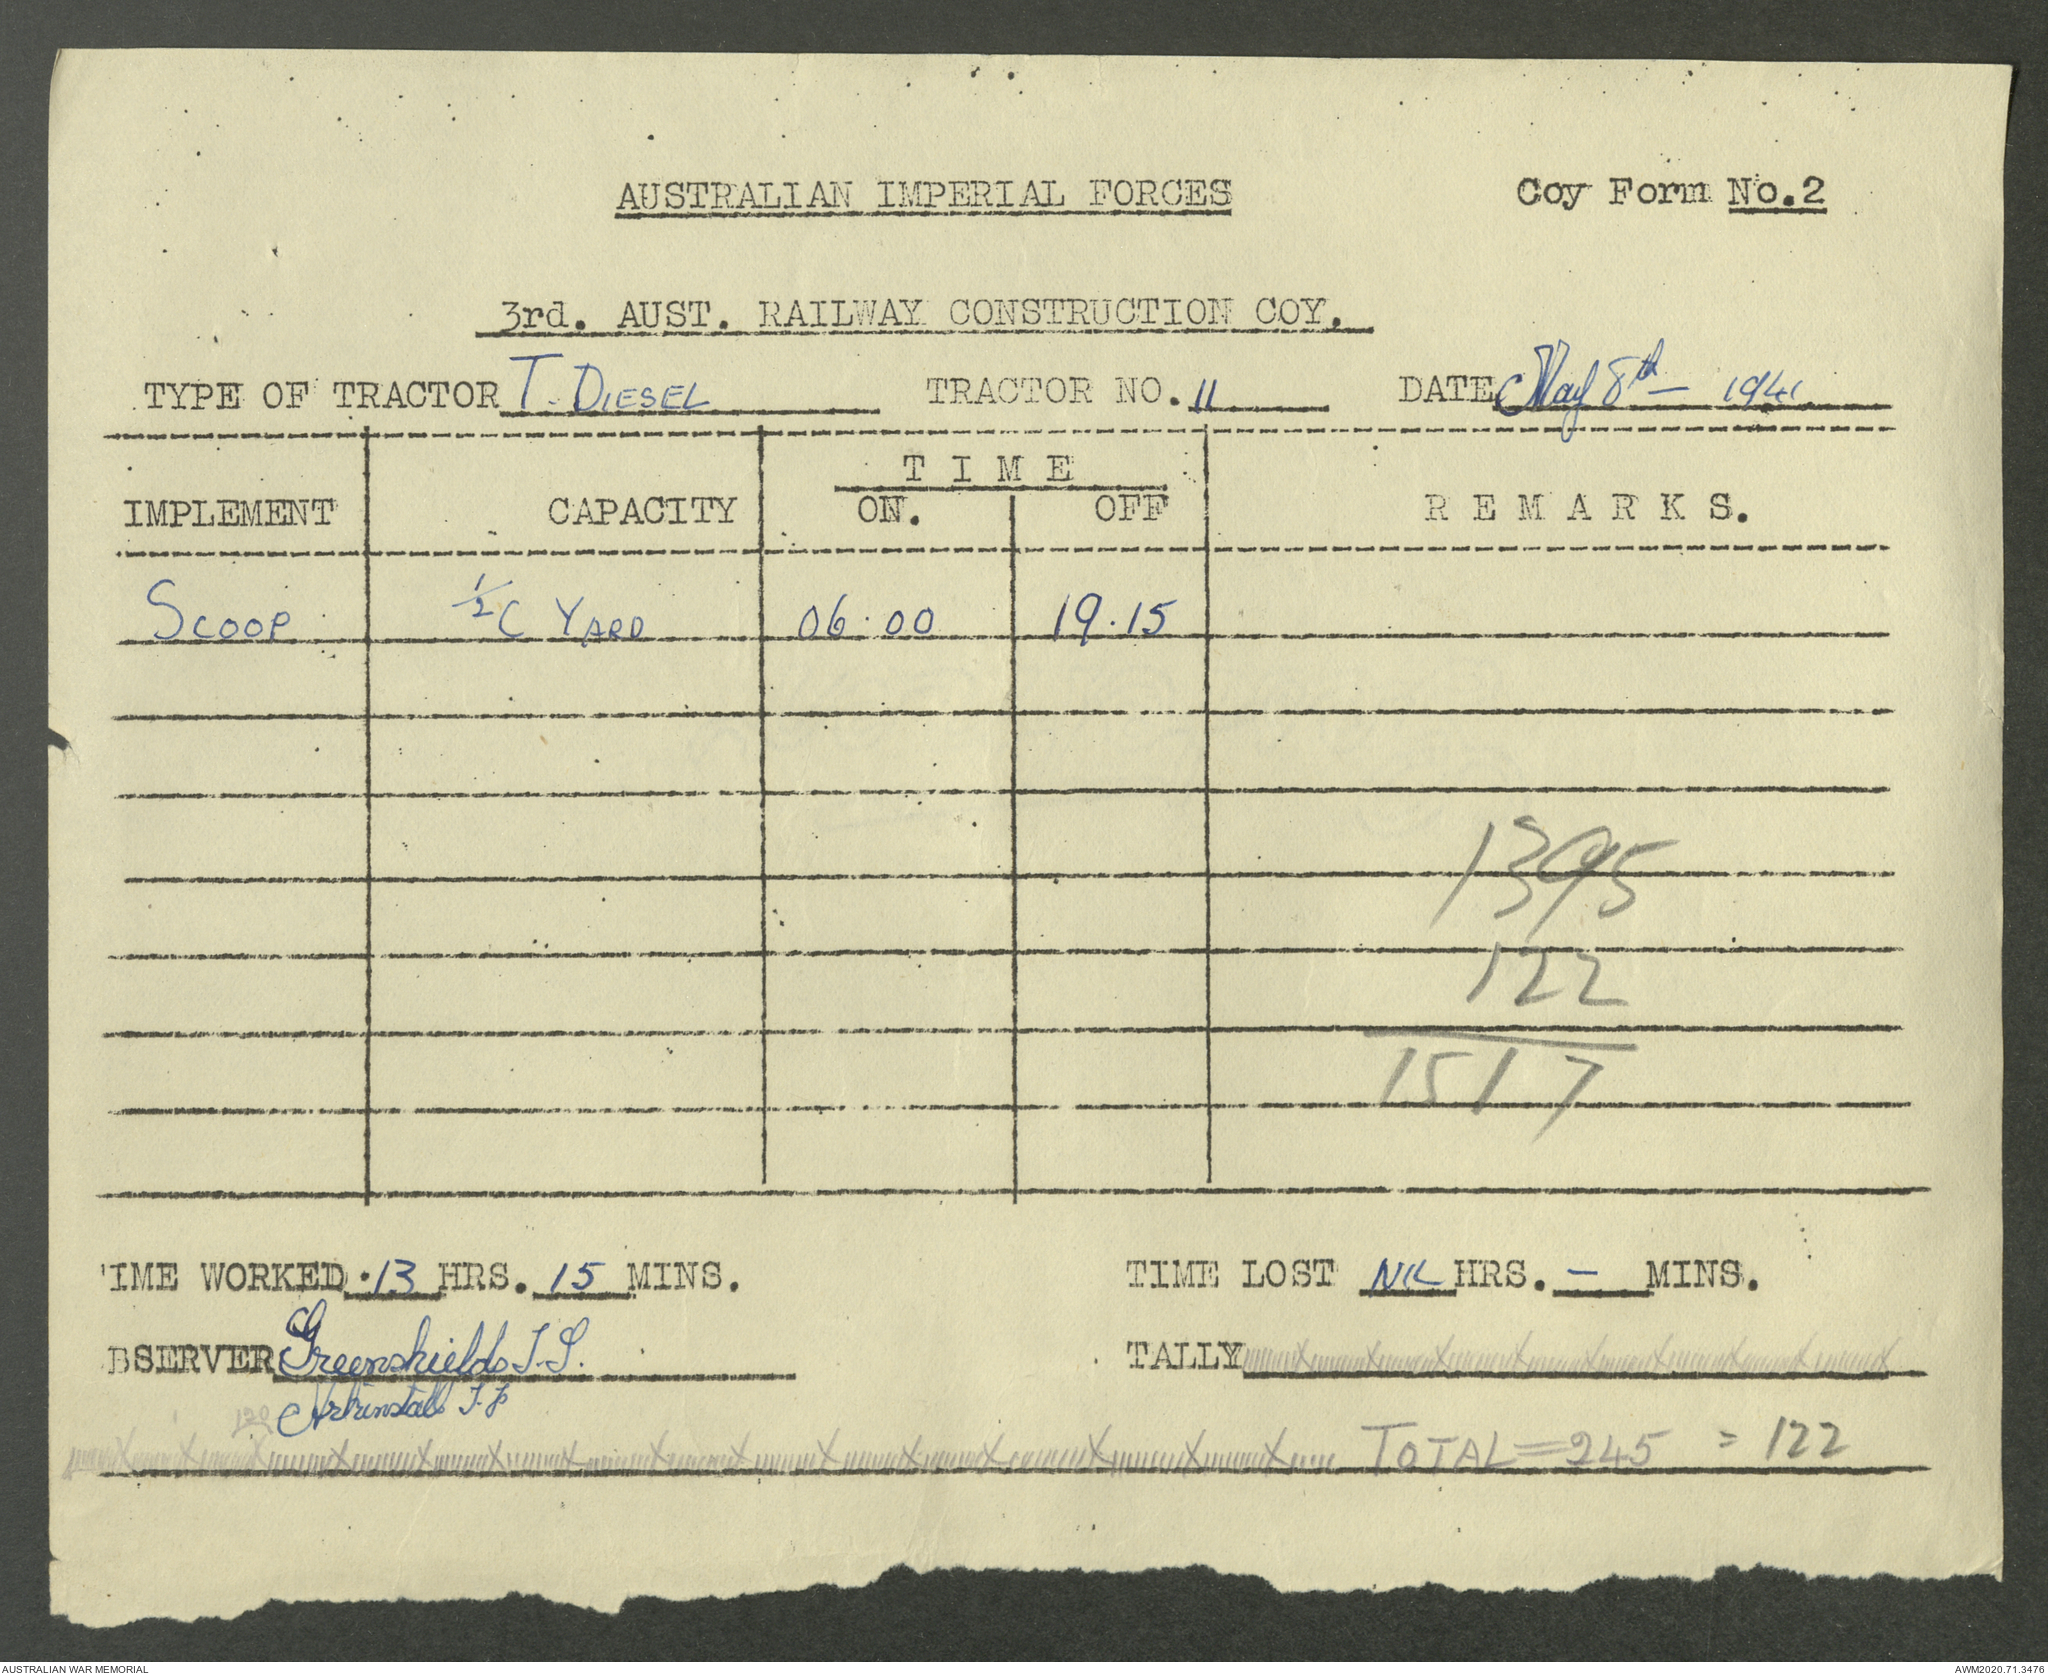 AUSTRALIAN IMPERIAL FORCES
Coy Form No.2
3rd. AUST. RAILWAY CONSTRUCTION COY.
TYPE OF TRACTOR T. DIESEL TRACTOR NO. 11 DATE May 8th - 1941
T I M E
IMPLEMENT CAPACITY ON. OFF R E M A R K S.
SCOOP 1/2 C YARD 06.00 19.15
1395
122
1517
IME WORKED 13 HRS. 15 MINS. TIME LOST NIL HRS. - MINS.
BSERVER Greenshields J.S. TALLY
Arkinstall
120
TOTAL = 245 = 122
AUSTRALIAN WAR MEMORIAL
AWM2020.71.3476